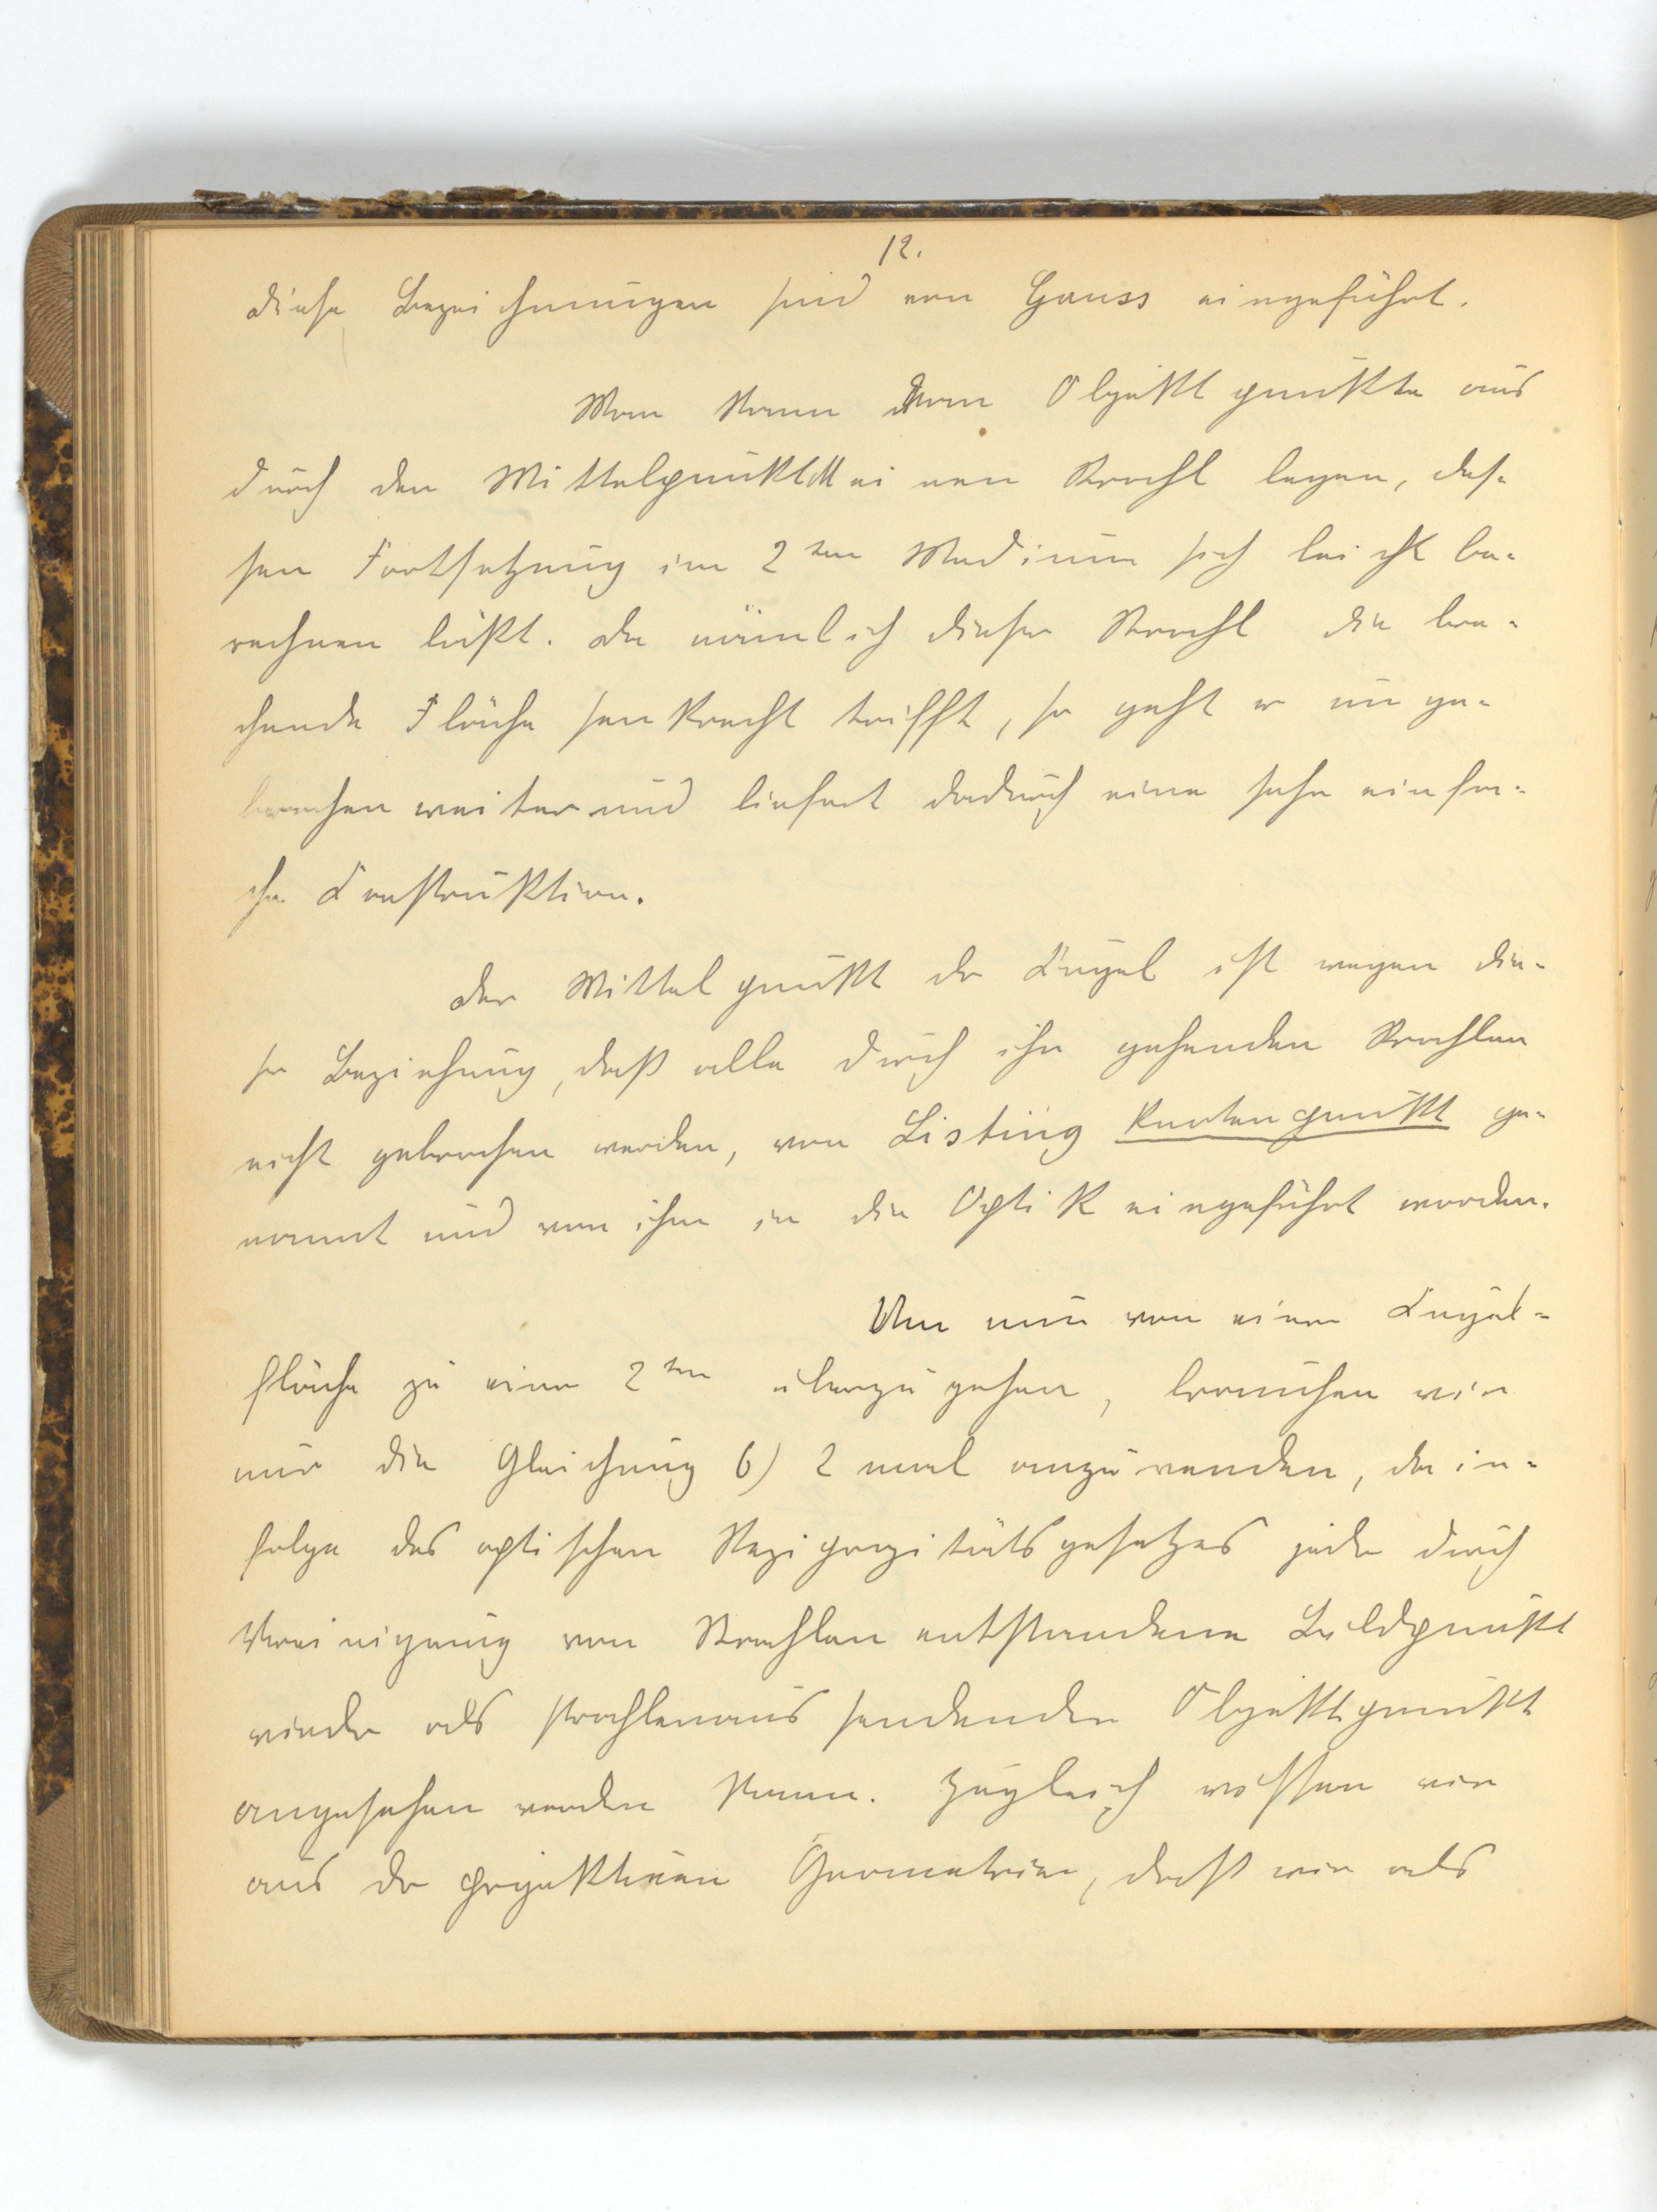 12.
Diese Bezeichnungen sind von Gauss eingeführt.
Man kann vom Objektpunkte aus
durch den Mittelpunkt M einen Strahl legen, des-
sen Fortsetzung im 2ten Medium sich leicht be-
rechnen läßt. Da nämlich dieser Strahl die bre-
chende Fläche senkrecht trifft, so geht er unge-
brochen weiter und liefert dadurch eine sehr einfa-
che Konstruktion.
Der Mittelpunkt der Kugel ist wegen die-
ser Beziehung, daß alle durch ihn gehenden Strahlen
nicht gebrochen werden, von Listing Knotenpunkt ge-
nannt und von ihm in die Optik eingeführt worden.
Um nun von einer Kugel-
fläche zu einer 2ten überzugehen, brauchen wir
nur die Gleichung 6) 2 mal anzuwenden, da in-
folge des optischen Reziprozitätsgesetzes jeder durch
Vereinigung von Strahlen entstandene Bildpunkt
wieder als strahlenaussendender Objektpunkt
angesehen werden kann. Zugleich wissen wir
aus der projektiven Geometrie, daß wir als